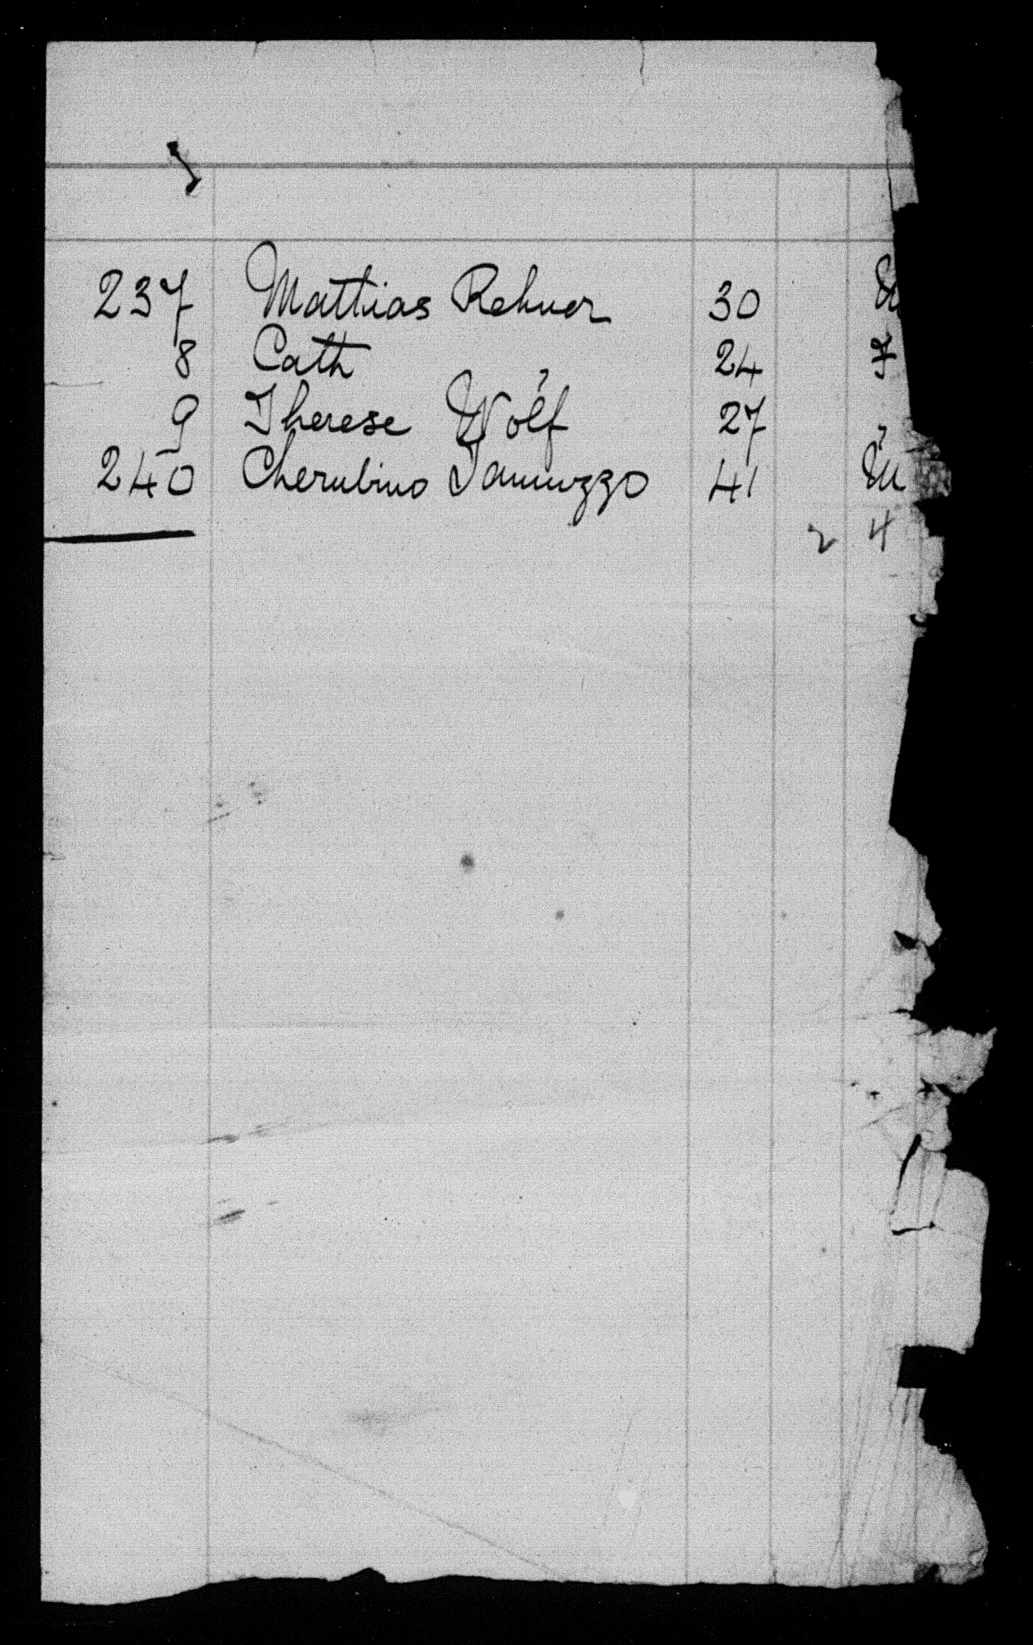 237 Mattias Rehner 30 M
8 Cath " 24 F
9 Therese Wolf 27 "
240 Cherubino Iannuzzo 41 M
2 4